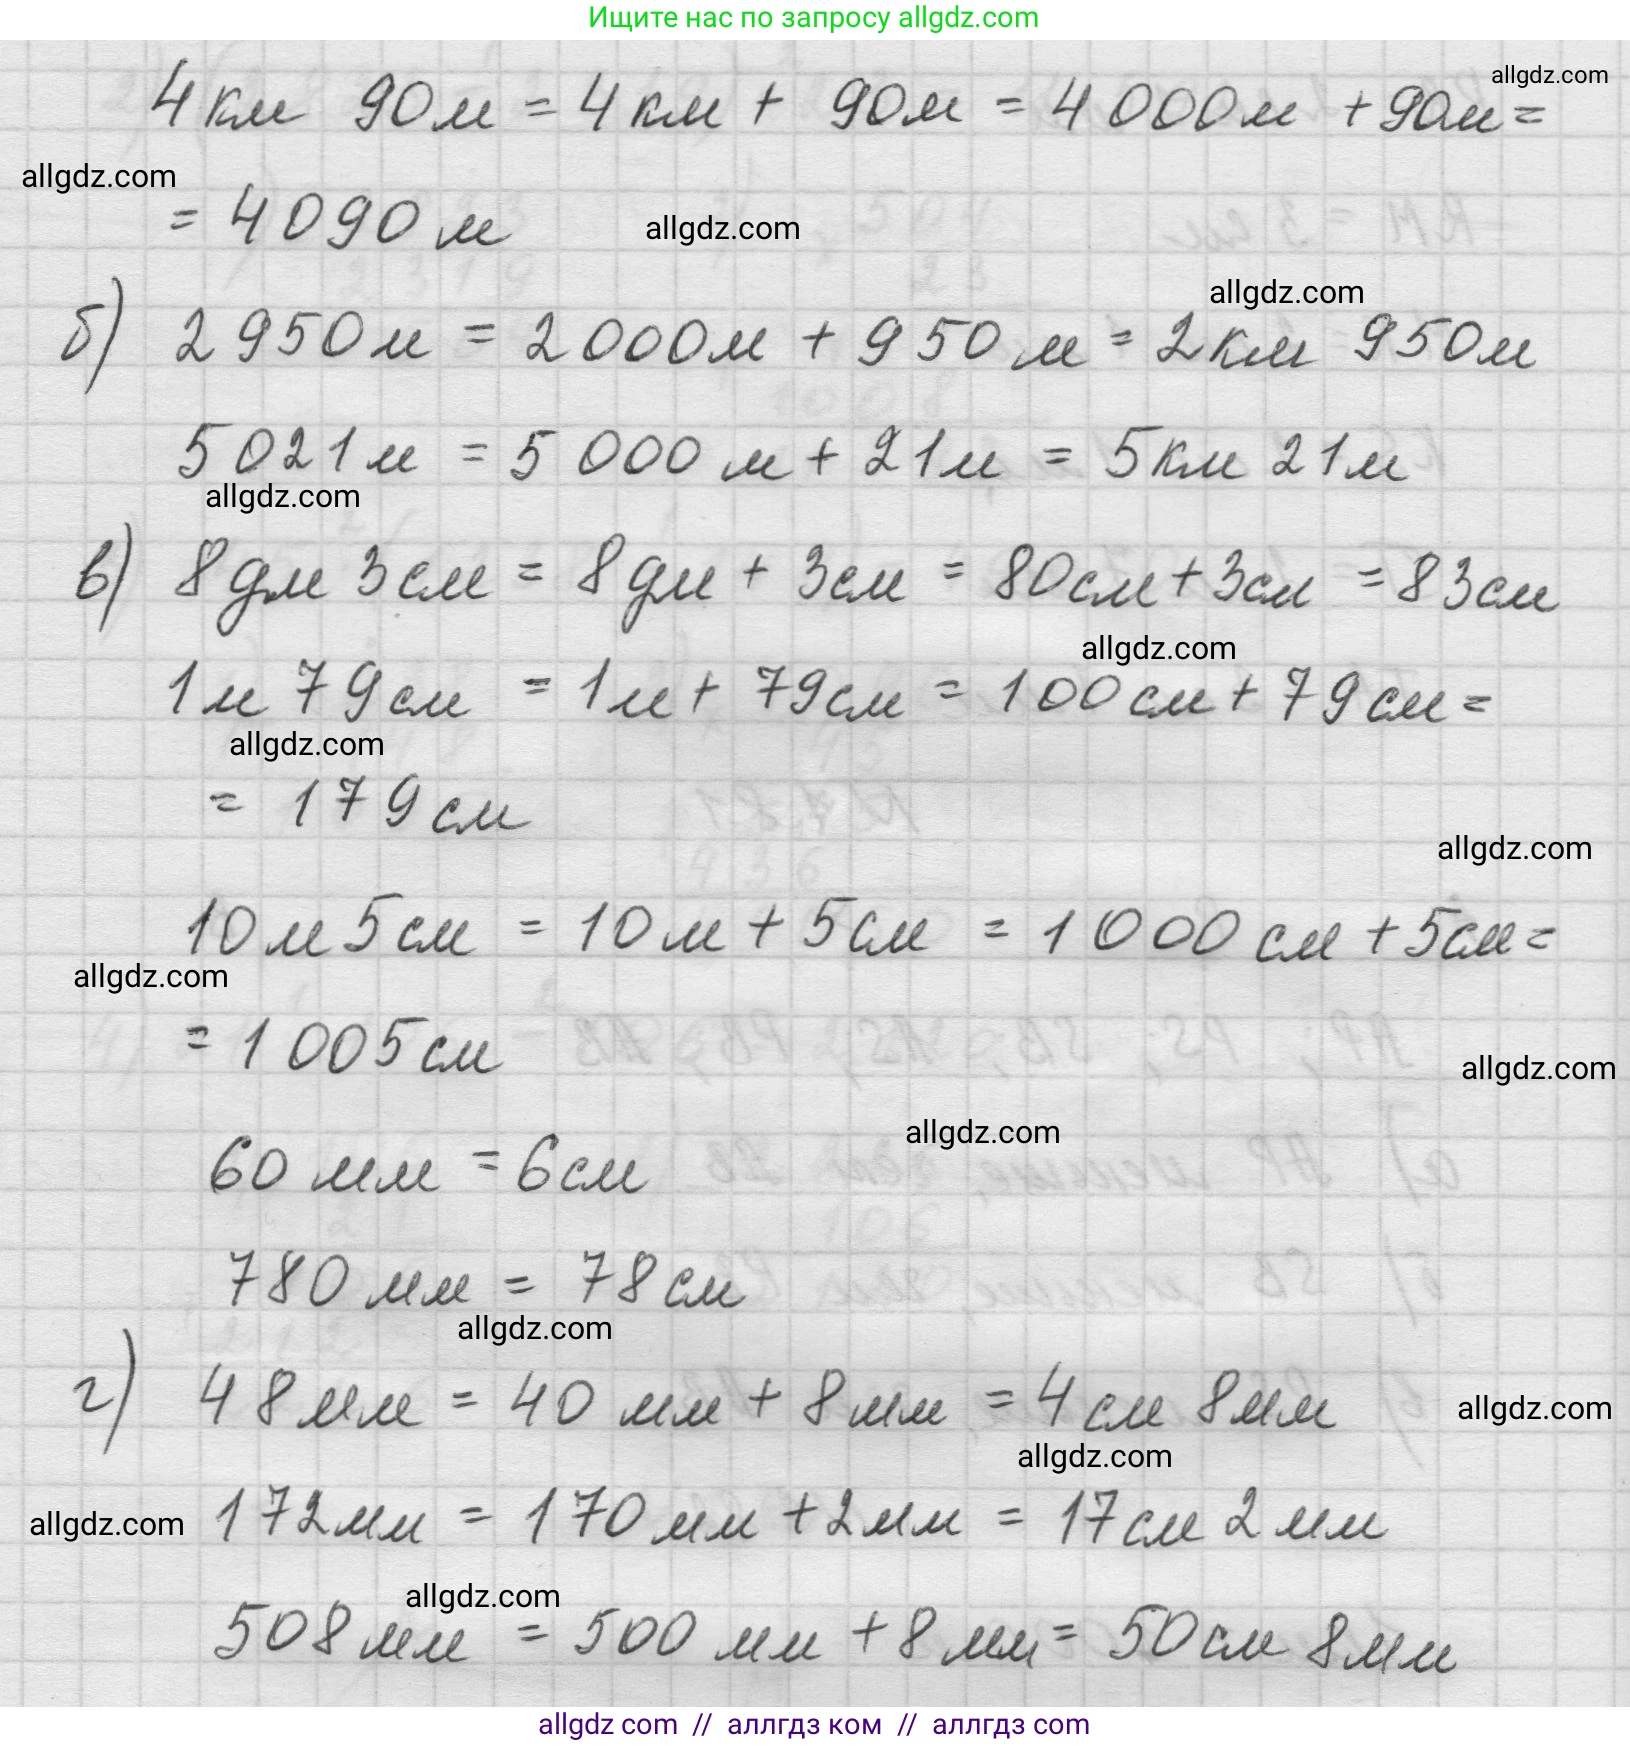 Ищите нас по запросу allgdz.com
allgdz.com
4км 90м = 4км + 90м = 4 000м + 90м =
allgdz.com
= 4 090 м
allgdz.com
allgdz.com
б) 2 950м = 2 000м + 950 м = 2км 950м
5 021 м = 5 000 м + 21м = 5км 21м
allgdz.com
в) 8дм 3см = 8дм + 3см = 80см + 3см = 83см
allgdz.com
1м 79см = 1м + 79см = 100см + 79см =
allgdz.com
= 179см
allgdz.com
10м 5см = 10м + 5см = 1 000 см + 5см =
allgdz.com
= 1 005см
allgdz.com
allgdz.com
60 мм = 6см
780 мм = 78см
allgdz.com
г) 48мм = 40 мм + 8мм = 4см 8мм
allgdz.com
allgdz.com
allgdz.com
172мм = 170мм + 2мм = 17см 2мм
allgdz.com
508мм = 500 мм + 8мм = 50см 8мм
allgdz com // аллгдз ком // аллгдз com